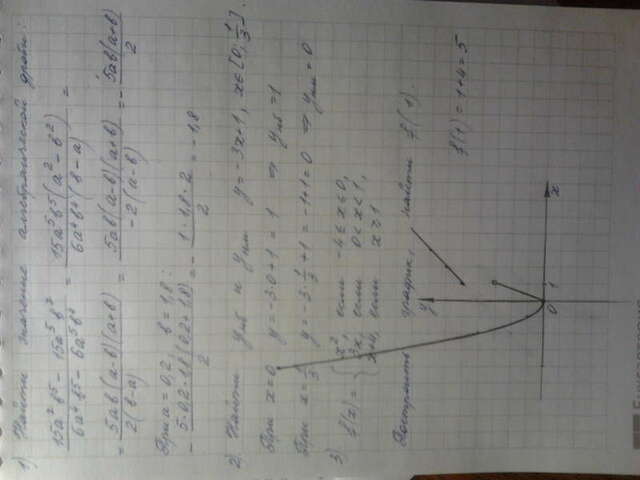 1) Найти значение алгебраической дроби:
(15a⁷b⁵ - 15a⁵b⁷)/(6a⁴b⁵ - 6a⁵b⁴) = 15a⁵b⁵(a² - b²)/(6a⁴b⁴(b - a)) =
= 5ab(a-b)(a+b)/(2(b-a)) = 5ab(a-b)(a+b)/(-2(a-b)) = - 5ab(a+b)/2
При a=0,2, b=1,8:
- 5·0,2·1,8(0,2+1,8)/2 = - 1·1,8·2/2 = -1,8
2) Найти yнб и yнм y=-3x+1, x∈[0; 1/3].
При x=0 y=-3·0+1=1 ⇒ yнб=1
При x=1/3 y=-3·1/3+1=-1+1=0 ⇒ yнм=0
3) f(x) = { x², если -4≤x≤0,
3x, если 0<x<1,
x+4, если x≥1
Построить график, найти f(1).
f(1)=1+4=5
y
0 1 x